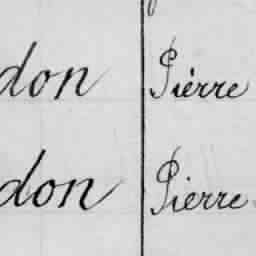 don Pierre
don Pierre